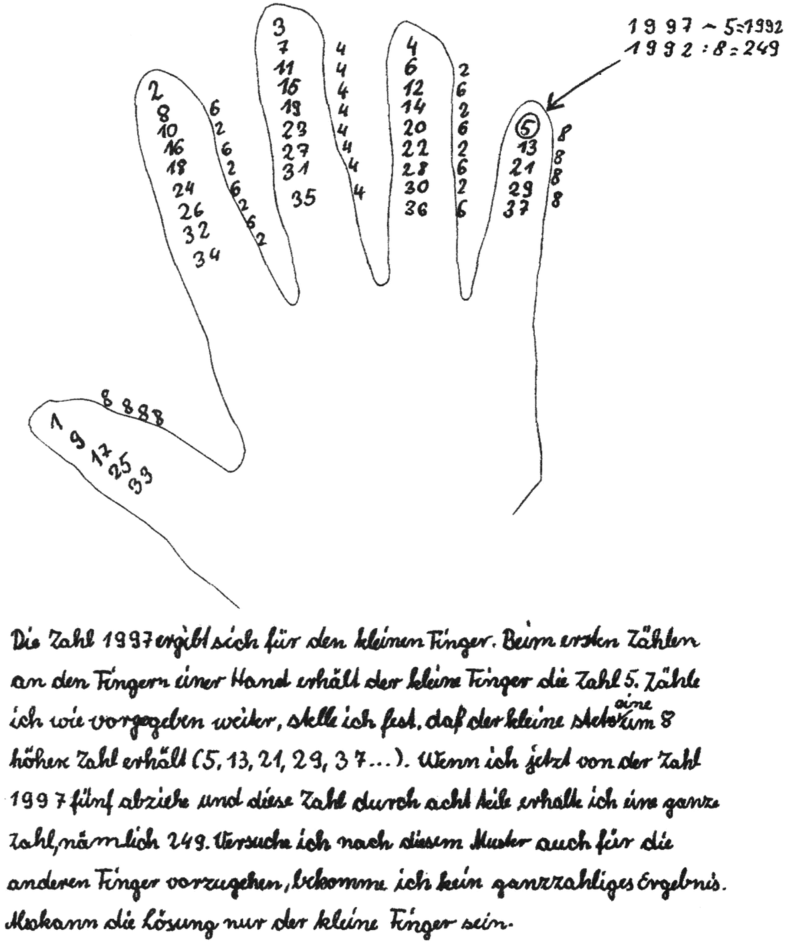 1997 - 5 = 1992
1992 : 8 = 249
3
7
11
15
19
23
27
31
35
4
4
4
4
4
4
4
4
4
6
12
14
20
22
28
30
36
2
6
2
6
2
6
2
6
2
8
10
16
18
24
26
32
34
6
2
6
2
6
2
6
2
5
13
21
29
37
8
8
8
8
8 8 8 8
1
9
17
25
33
Die Zahl 1997 ergibt sich für den kleinen Finger. Beim ersten Zählen
an den Fingern einer Hand erhält der kleine Finger die Zahl 5. Zähle
ich wie vorgegeben weiter, stelle ich fest, daß der kleine stets eine um 8
höhere Zahl erhält (5, 13, 21, 29, 37...). Wenn ich jetzt von der Zahl
1997 fünf abziehe und diese Zahl durch acht teile erhalte ich eine ganze
Zahl, nämlich 249. Versuche ich nach diesem Muster auch für die
anderen Finger vorzugehen, bekomme ich kein ganzzahliges Ergebnis.
Also kann die Lösung nur der kleine Finger sein.